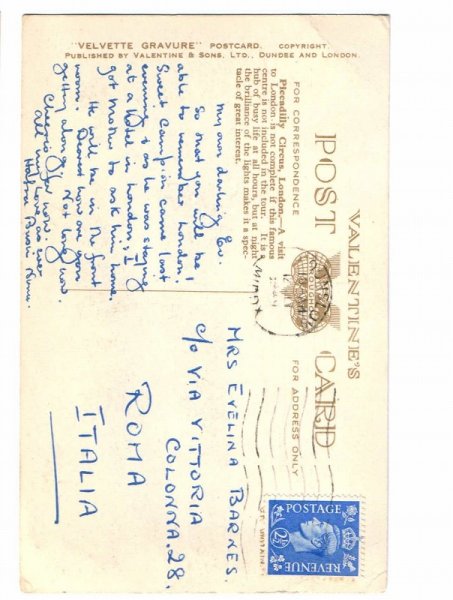 "VELVETTE GRAVURE" POSTCARD. COPYRIGHT.
PUBLISHED BY VALENTINE & SONS, LTD., DUNDEE AND LONDON.
VALENTINE'S
POST CARD
FOR CORRESPONDENCE
FOR ADDRESS ONLY
Piccadilly Circus, London.—A visit
to London is not complete if this famous
centre is not included in the tour. It is a
hub of busy life at all hours, but at night
the brilliance of the lights makes it a spec-
tacle of great interest.
My own darling Ev.
So that you will be
able to remember London.
Sweet came last
evening & as he was staying
at a Hotel in London, I
got Mother to ask him home.
He will be in the front
room. Dearest how are you
getting along. Not long now.
Cheerio for now.
All my love as ever
MRS EVELINA BARNES.
C/O VIA VITTORIA
COLONNA. 28,
ROMA
ITALIA
POSTAGE
2½D
REVENUE